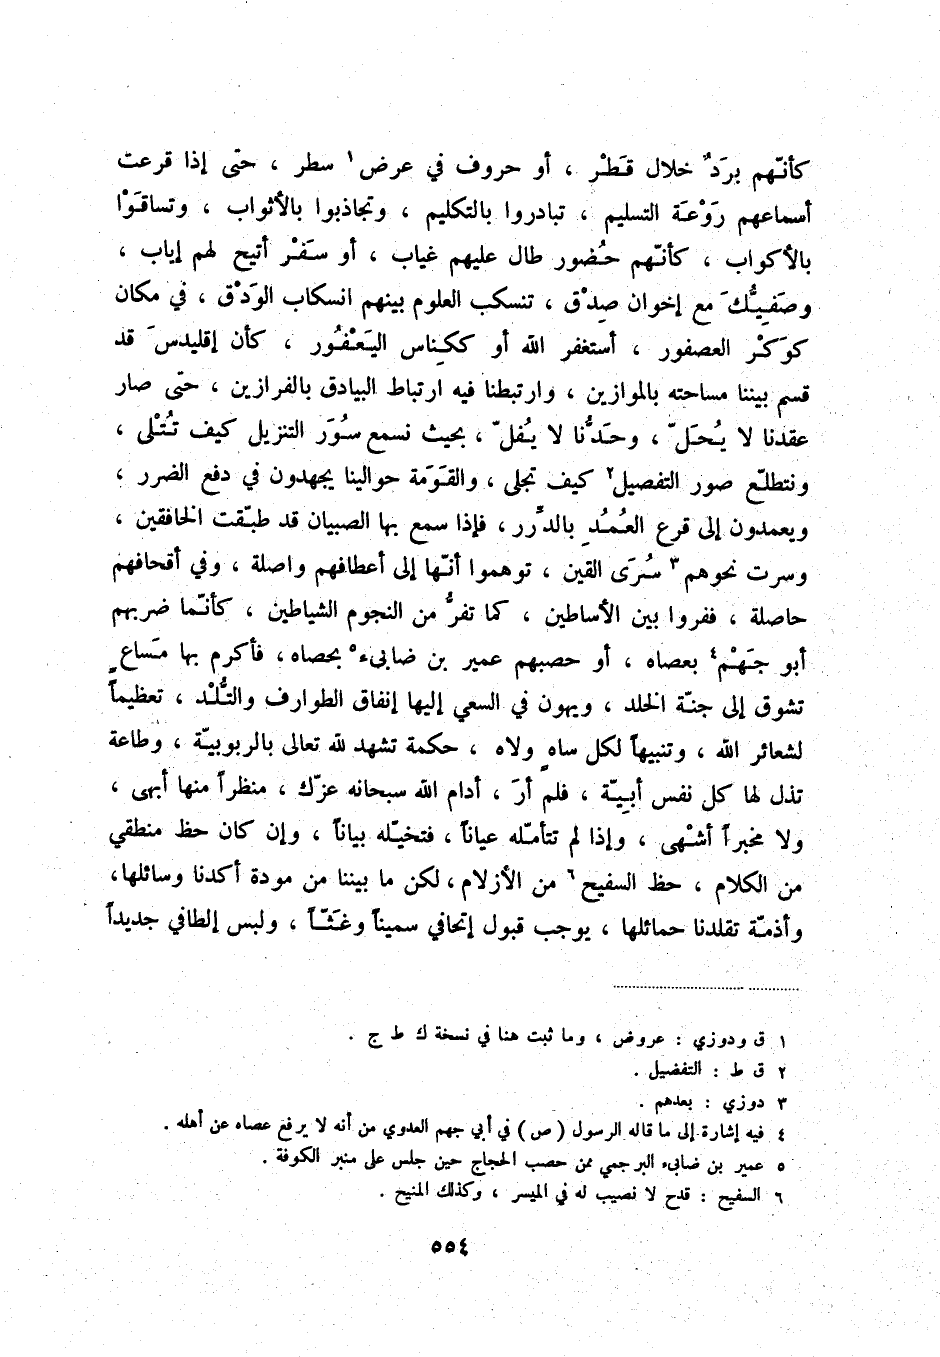 كأنّهم برَدٌ خلال قَطْر ، أو حروف في عرض١ سطر ، حتّى إذا قرعت
أسماعهم رَوْعَة التسليم ، تبادروا بالتكليم ، وتجاذبوا بالأثواب ، وتساقَوْا
بالأكواب ، كأنّهم حُضور طال عليهم غياب ، أو سَفْر أتيح لهم إياب ،
وصَفِيُّكَ مع إخوان صِدْق ، تنسكب العلوم بينهم انسكاب الوَدْق ، في مكان
كوَكْر العصفور ، أستغفر الله أو ككِناس اليَعْفُور ، كأن إقليدسَ قد
قسم بيننا مساحته بالموازين ، وارتبطنا فيه ارتباط البيادق بالفرازين ، حتّى صار
عقدنا لا يُحَلّ ، وحَدُّنا لا يُفلّ ، بحيث نسمع سُوَر التنزيل كيف تُتْلى ،
ونتطلّع صور التفصيل٢ كيف تجلى ، والقَوَمَة حوالينا يجهدون في دفع الضرر ،
ويعمدون إلى قرع العُمُدِ بالدِّرر ، فإذا سمع بها الصبيان قد طبّقت الخافقين ،
وسرت نحوهم٣ سُرَى القين ، توهموا أنّها إلى أعطافهم واصلة ، وفي أقحافهم
حاصلة ، ففروا بين الأساطين ، كما تفرُّ من النجوم الشياطين ، كأنّما ضربهم
أبو جَهْم٤ بعصاه ، أو حصبهم عمير بن ضابىء٥ بحصاه ، فأكرم بها مَساعٍ
تشوق إلى جنّة الخلد ، ويهون في السعي إليها إنفاق الطوارف والتُّلْد ، تعظيماً
لشعائر الله ، وتنبيهاً لكل ساهٍ ولاه ، حكمة تشهد لله تعالى بالربوبيّة ، وطاعة
تذل لها كل نفس أبيّة ، فلم أرَ ، أدام الله سبحانه عزّك ، منظراً منها أبهى ،
ولا مخبراً أشْهى ، وإذا لم تتأمّله عياناً ، فتخيّله بياناً ، وإن كان حظ منطقي
من الكلام ، حظ السفيح٦ من الأزلام ، لكن ما بيننا من مودة أكدنا وسائلها ،
وأذمّة تقلدنا حمائلها ، يوجب قبول إتحافي سميناً وغَثّاً ، ولبس إلطافي جديداً
١ ق ودوزي : عروض ، وما ثبت هنا في نسخة ك ط ج .
٢ ق ط : التفضيل .
٣ دوزي : بعدهم .
٤ فيه إشارة إلى ما قاله الرسول ( ص ) في أبي جهم العدوي من أنه لا يرفع عصاه عن أهله .
٥ عمير بن ضابىء البرجمي ممن حصب الحجاج حين جلس على منبر الكوفة .
٦ السفيح : قدح لا نصيب له في الميسر ، وكذلك المنيح .
٥٥٤